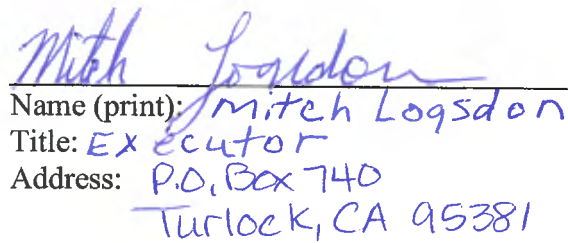 Mitch Logsdon
Name (print): Mitch Logsdon
Title: Executor
Address: P.O. Box 740
Turlock, CA 95381